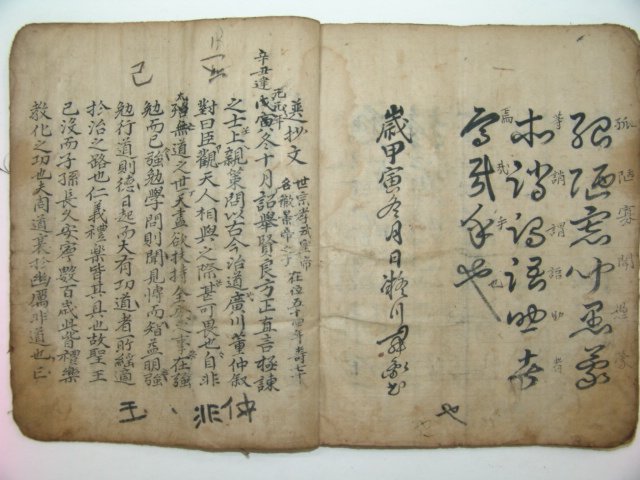 孤陋寡聞愚蒙
等誚謂語助者
焉哉乎也
歲甲寅冬月日
選抄文
世宗孝武皇帝
名徹景帝之子在位五十四年壽七十
辛丑建元元年
戊寅冬十月詔舉賢良方正直言極諫
之士上親策問以古今治道廣川董仲舒
對曰臣觀天人相與之際甚可畏也自非
大無道之世天盡欲扶持全安之事在強
勉而已強勉學問則聞見博而智益明強
勉行道則德日起而大有功道者所繇適
於治之路也仁義禮樂皆其具也故聖王
已沒而子孫長久安寧數百歲此皆禮樂
教化之功也夫周道衰於幽厲非道亡也
己
仲
非
王